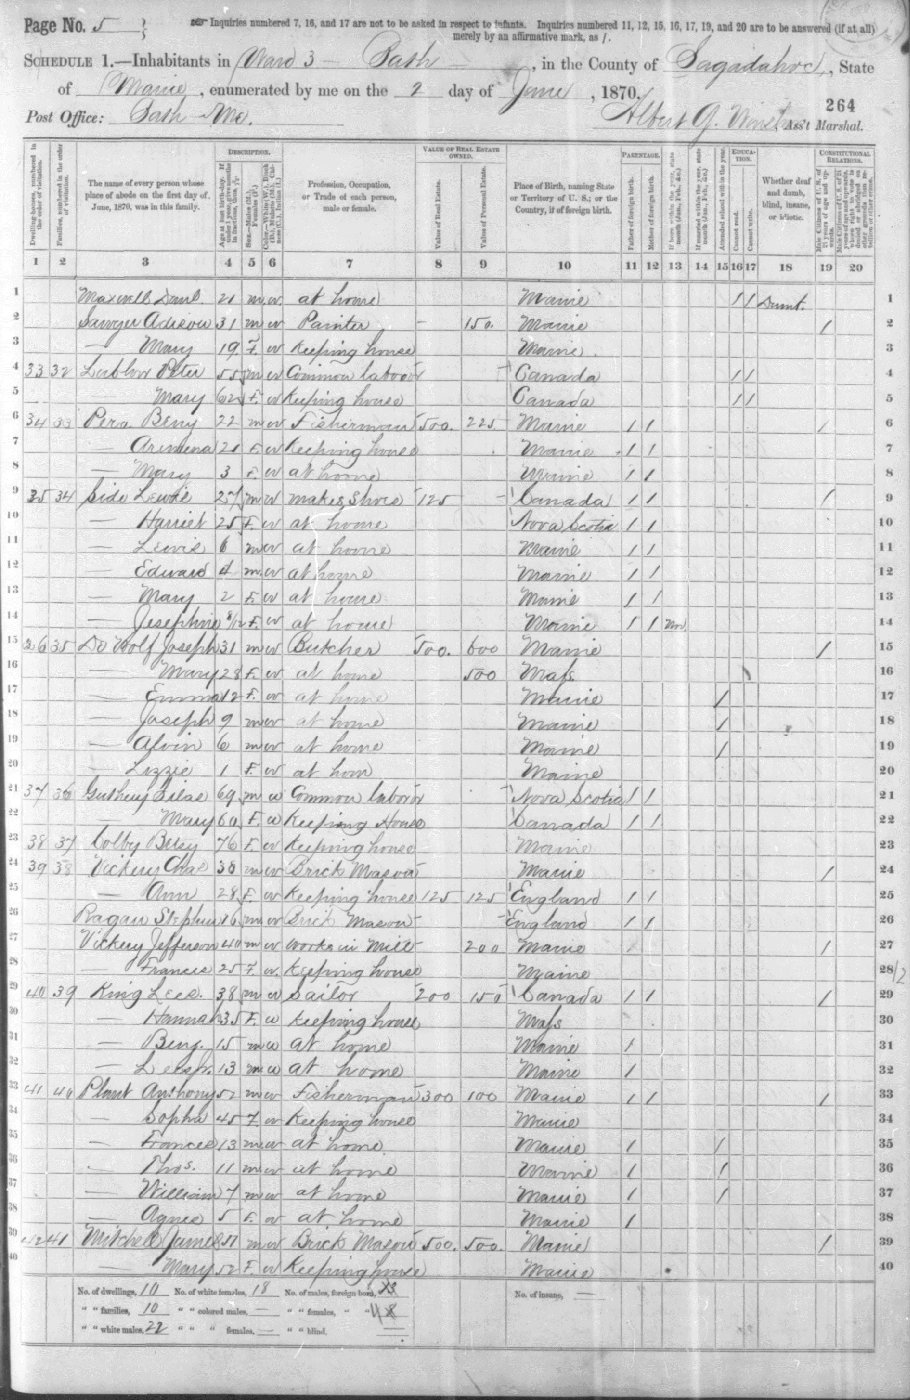 Page No. 5
Inquiries numbered 7, 16, and 17 are not to be asked in respect to infants. Inquiries numbered 11, 12, 15, 16, 17, 19, and 20 are to be answered (if at all)
merely by an affirmative mark, as /.
SCHEDULE 1.—Inhabitants in Ward 3 – Bath, in the County of Sagadahoc, State
of Maine, enumerated by me on the 2 day of June, 1870.
264
Post Office: Bath Me. Albert G. Ass't Marshal.
DESCRIPTION. VALUE OF REAL ESTATE OWNED. PARENTAGE. EDUCATION. CONSTITUTIONAL RELATIONS.
Dwelling-houses, numbered in the order of visitation.
Families, numbered in the order of visitation.
The name of every person whose place of abode on the first day of June, 1870, was in this family.
Profession, Occupation, or Trade of each person, male or female.
Value of Real Estate.
Value of Personal Estate.
Place of Birth, naming State or Territory of U. S.; or the Country, if of foreign birth.
Father of foreign birth.
Mother of foreign birth.
Attended school within the year.
Cannot read.
Cannot write.
Whether deaf and dumb, blind, insane, or idiotic.
1 2 3 4 5 6 7 8 9 10 11 12 13 14 15 16 17 18 19 20
1 Maxwell Danl. 21 m w at home Maine 1 1 Dumb. 1
2 Sawyer Adison 31 m w Painter – 150. Maine 1 2
3 — Mary 19 F. w Keeping house Maine. 3
4 33 32 Peter 55 m w Common laborer Canada 1 1 4
5 — Mary 62 F. w Keeping house Canada 1 1 5
6 34 33 Benj 22 m w Fisherman 500. 225 Maine 1 1 1 6
7 — 21 F. w Keeping house Maine 1 1 7
8 — Mary 3 F. w at home Maine 1 1 8
9 35 34 Lewie 27 m w makes Shoes 125 Canada 1 1 1 9
10 — Harriet 25 F. w at home Nova Scotia 1 1 10
11 — Lewis 6 m w at home Maine 1 1 11
12 — Edward 4 m w at home Maine 1 1 12
13 — Mary 2 F. w at home Maine 1 1 13
14 — Josephine /12 F. w at home Maine 1 1 14
15 36 35 De Wolf Joseph 31 m w Butcher 500. 600 Maine 1 15
16 Mary 28 F. w at home 500 Mass 16
17 — Emma 12 F. w at home Maine 1 17
18 — Joseph 9 m w at home Maine 1 18
19 — Alvin 6 m w at home Maine 1 19
20 — Lizzie 1 F. w at hom Maine 20
21 37 36 Silas 69 m w Common laborer Nova Scotia 1 1 21
22 — Mary 60 F. w Keeping House Canada 1 1 22
23 38 37 Colby Betsy 76 F. w Keeping house Maine 23
24 39 38 Vickery Chas 30 m w Brick Mason Maine 1 24
25 — Ann 28 F. w Keeping house 125 125 England 1 1 25
26 Ragan Stephen 16 m w Brick Mason England 1 1 26
27 Vickery Jefferson 40 m w works in Mill 200 Maine 1 27
28 — Francis 25 F. w. Keeping house Maine 28
29 40 39 King Lees. 38 m w Sailor 200 150 Canada 1 1 1 29
30 — Hannah 35 F. w Keeping house Mass 30
31 — Benj. 15 m w at home Maine 1 31
32 — 13 m w at home Maine 1 32
33 41 40 Plant Anthony 52 m w Fisherman 300 100 Maine 1 1 1 33
34 — Sopha 45 F. w Keeping house Maine 34
35 — Frances 13 m w at home. Maine 1 1 35
36 — Thos. 11 m w at home Maine 1 1 36
37 — William 7 m w at home Maine 1 1 37
38 — Agnes 5 F. w at home Maine 1 38
39 42 41 Mitchell James 51 m w Brick Mason 500. 500. Maine 1 39
40 — Mary 52 F. w Keeping house Maine 40
No. of dwellings, 10 No. of white females, 18 No. of males, foreign born, No. of insane, —
" " families, 10 " " colored males, — " " females, " "
" " white males, 22 " " " females, — " " blind. —